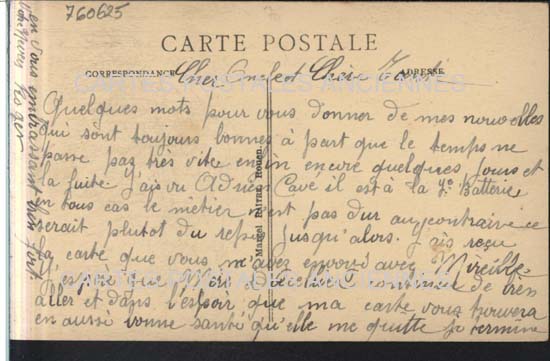 760625
CARTE POSTALE
CORRESPONDANCE
ADRESSE
Cher Oncle et Chère Tante
Quelques mots pour vous donner de mes nouvelles
qui sont toujours bonnes à part que le temps ne
passe pas très vite enfin encore quelques jours et
la fuite. J'ais vu Adrien Cavé il est à la 7e Batterie
en tous cas le métier n'est pas dur au contraire ce
serait plutôt du repos jusqu'alors. J'ais reçu
la carte que vous m'avez envoyé avec Mireille.
J'espère que continue de bien
aller et dans l'espoir que ma carte vous trouvera
en aussi bonne santé qu'elle me quitte je termine
en vous embrassant bien fort
Votre neveu Roger
Marcel Rouen
CARTES POSTALES ANCIENNES
CARTES POSTALES ANCIENNES